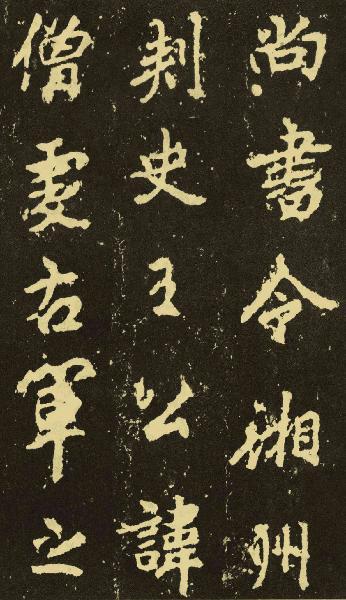 尚書令湘州
刾史王公諱
僧虔右軍之